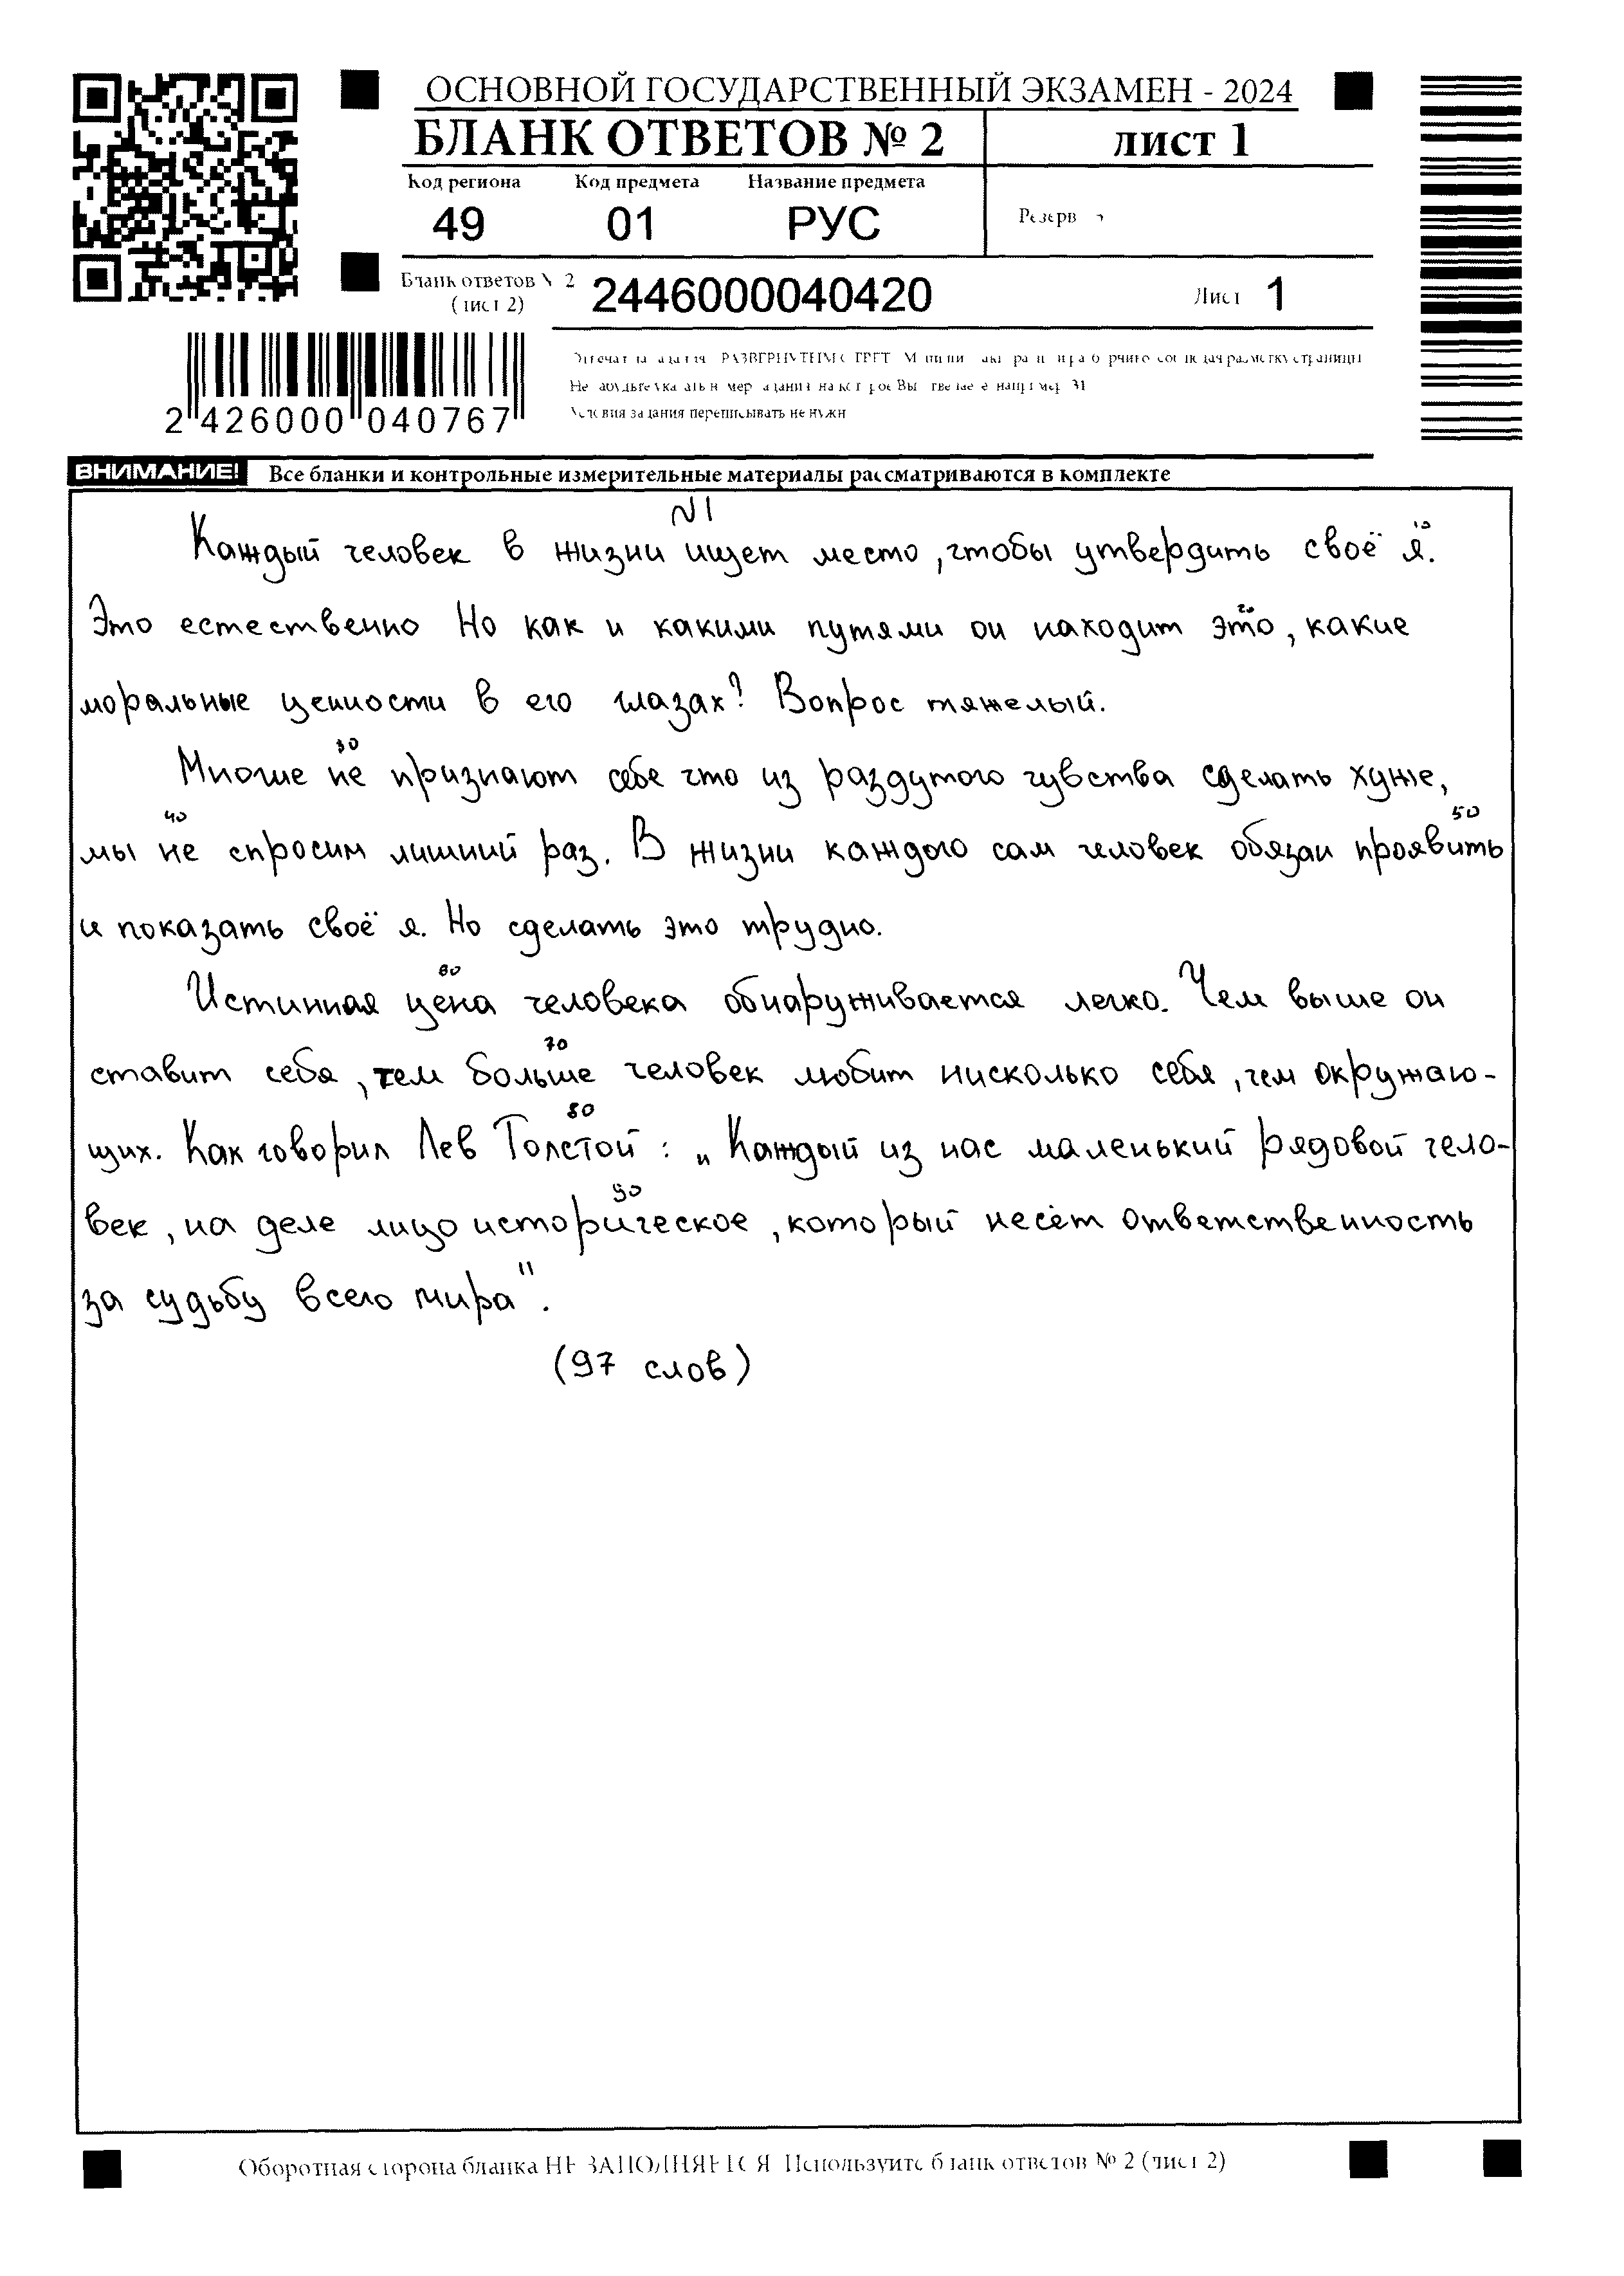 ОСНОВНОЙ ГОСУДАРСТВЕННЫЙ ЭКЗАМЕН - 2024
БЛАНК ОТВЕТОВ № 2
лист 1
Код региона Код предмета Название предмета
49 01 РУС
Резерв
Бланк ответов № 2
(лист 2)
2446000040420
Лист 1
2 426000 040767
Условия задания переписывать не нужн
ВНИМАНИЕ! Все бланки и контрольные измерительные материалы рассматриваются в комплекте
N1
10
Каждый человек в жизни ищет место, чтобы утвердить своё я.
20
Это естественно Но как и какими путями он находит это, какие
моральные ценности в его глазах? Вопрос тяжелый.
30
Многие не признают себе что из раздутого чувства сделать хуже,
40 50
мы не спросим лишний раз. В жизни каждого сам человек обязан проявить
и показать своё я. Но сделать это трудно.
60
Истинная цена человека обнаруживается легко. Чем выше он
70
ставит себя, тем больше человек любит нисколько себя, чем окружаю-
80
щих. Как говорил Лев Толстой: „Каждый из нас маленький рядовой чело-
90
век, на деле лицо историческое, который несёт ответственность
за судьбу всего мира".
(97 слов)
Оборотная сторона бланка НЕ ЗАПОЛНЯЕТСЯ Используйте бланк ответов № 2 (лист 2)